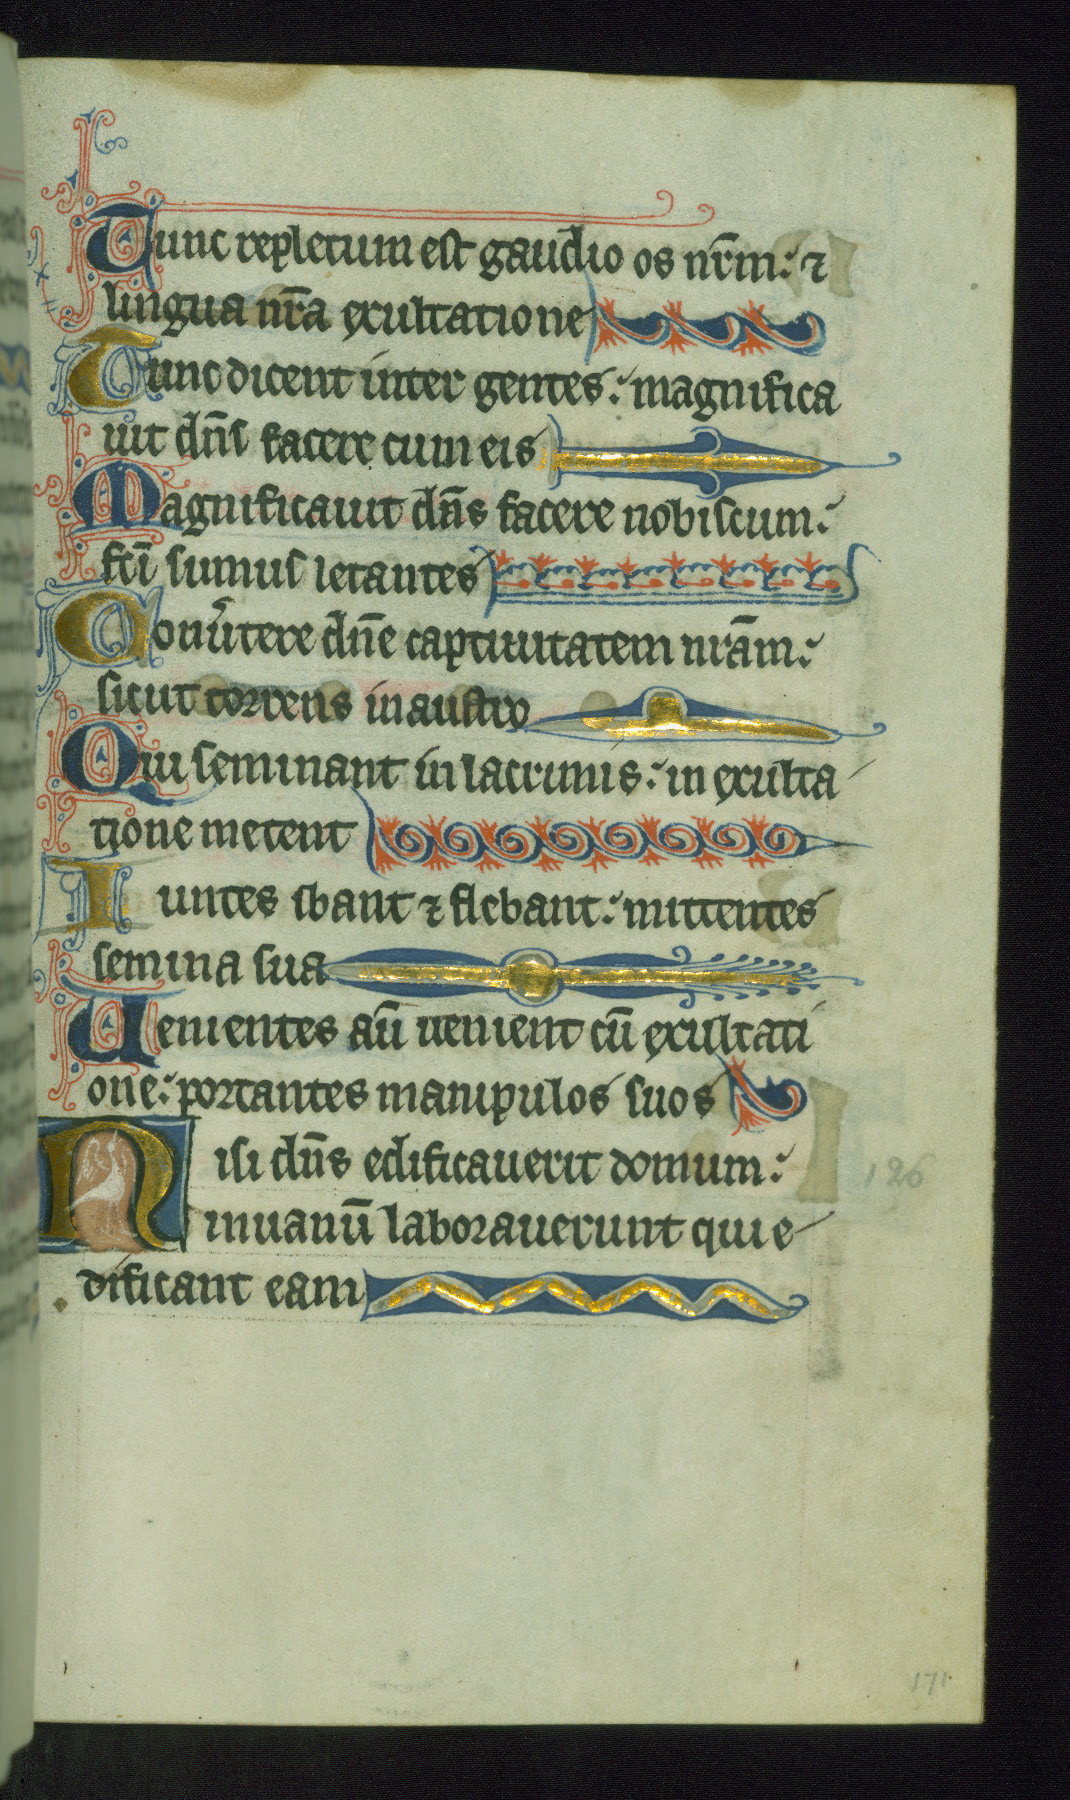 Tunc repletum est gaudio os nr̄m: ⁊
lingua nr̄a exultatione
Tunc dicent inter gentes: magnifica
uit dn̄s facere cum eis
Magnificauit dn̄s facere nobiscum:
fc̄i sumus letantes
Conu̓tere dn̄e captiuitatem nrām:
sicut torrens in austro
Qui seminant in lacrimis: in exulta
tione metent
Iuntes ibant ⁊ flebant: mittentes
semina sua
Uenientes aū uenient cū exultati
one: portantes manipulos suos
Nisi dn̄s edificauerit domum:
inuanū laborauerunt qui e
dificant eam
126
171